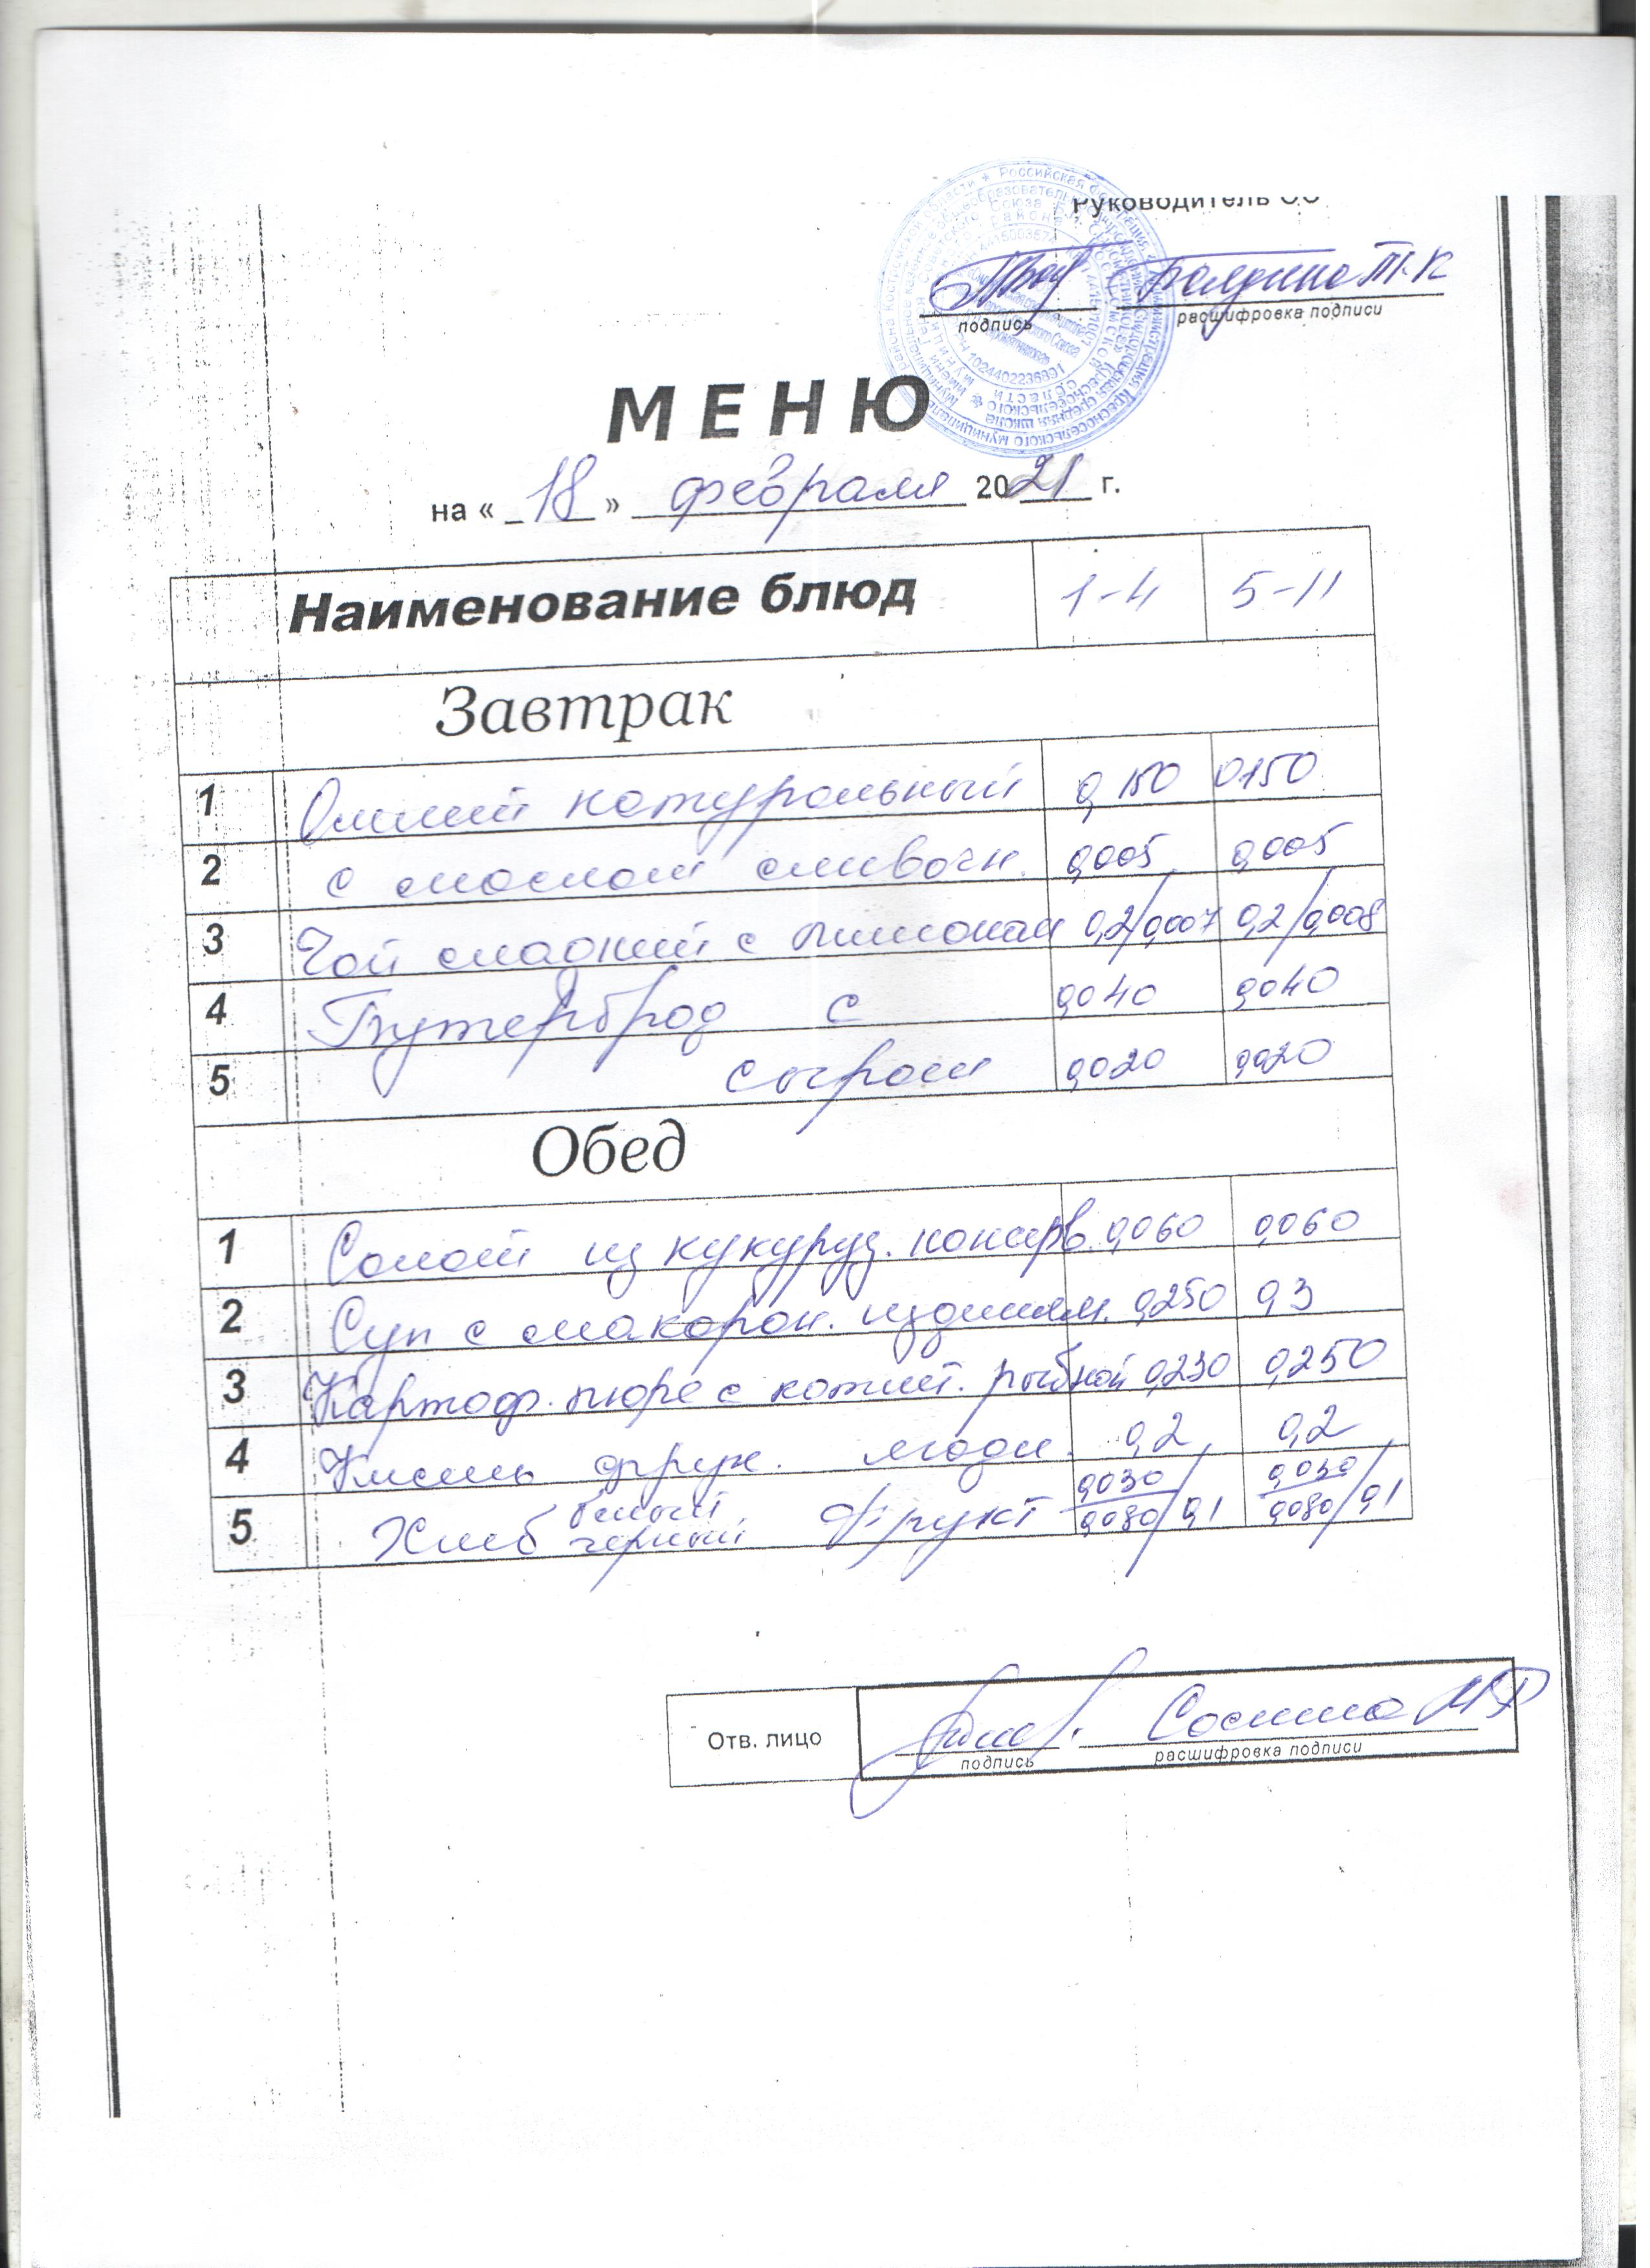 Руководитель ОО
Болдина Т.К
подпись расшифровка подписи
МЕНЮ
на « 18 » февраля 2021 г.
Наименование блюд 1-4 5-11
Завтрак
1 Омлет натуральный 0,150 0150
2 с маслом сливочн. 0,005 0,005
3 Чай сладкий с лимоном 0,2/0,007 0,2/0,008
4 Бутерброд с 0,040 0,040
5 сыром 0,020 0,020
Обед
1 Салат из кукуруз. консерв. 0,060 0,060
2 Суп с макарон. изделиям. 0,250 0,3
3 Картоф. пюре с котлет. рыбной 0,230 0,250
4 Кисель фрук. ягодн. 0,2 0,2
5 Хлеб белый черный Фрукт 0,030/0,080/0,1 0,030/0,080/0,1
Отв. лицо
подпись расшифровка подписи